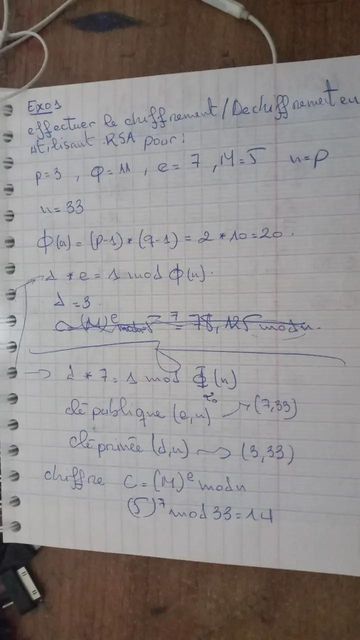 Exo1
effectuer le chiffrement / Dechiffrement en
utilisant RSA pour:
p=3, q=11, e=7, M=5 n=p
n=33
Φ(n) = (p-1)*(q-1) = 2*10=20.
d * e = 1 mod Φ(n).
d = 3
5^7 = 78,125 mod n.
→ d * 7 = 1 mod Φ(n)
20
clé publique (e,n) → (7,33)
clé privée (d,n) → (3,33)
chiffre C = (M)^e mod n
(5)^7 mod 33 = 14